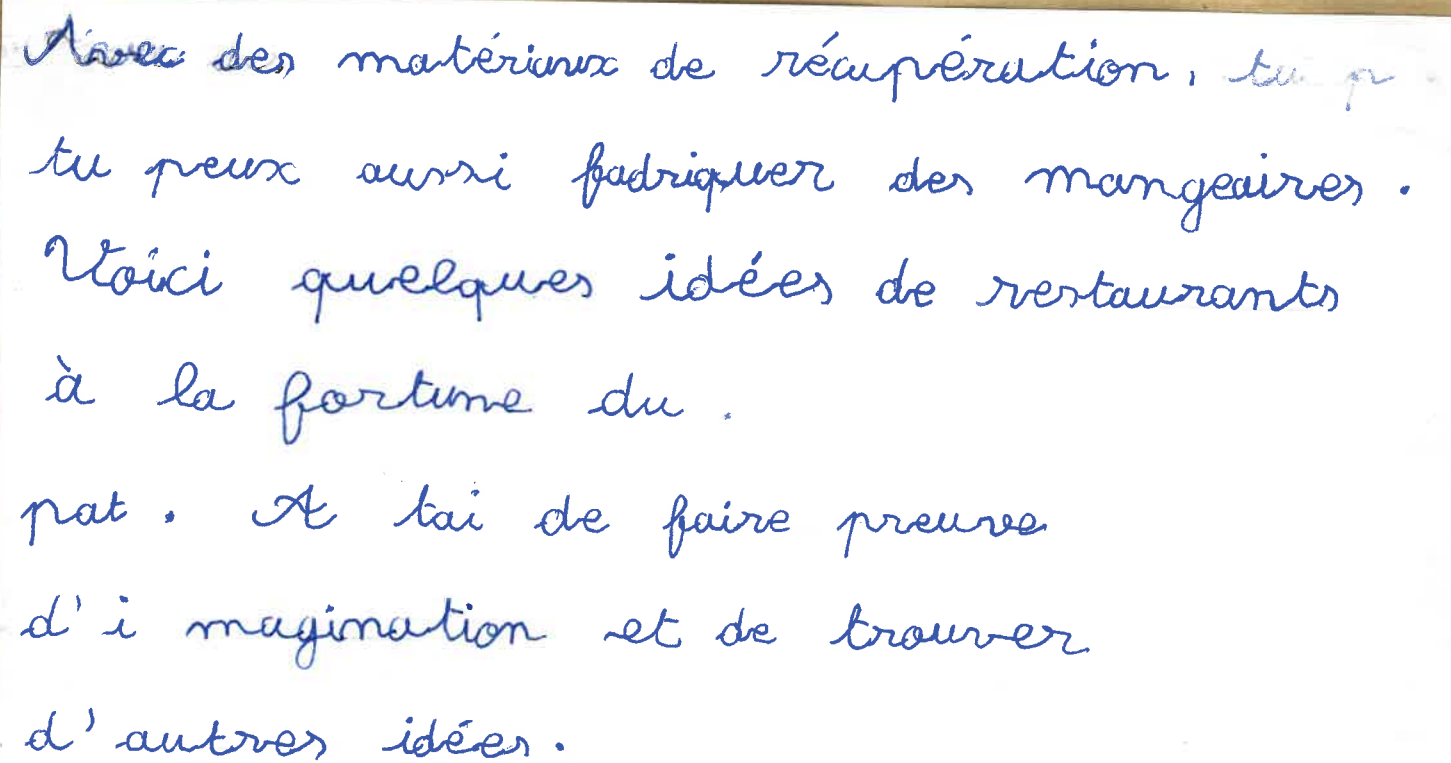 Avec des matériaux de récupération, tu p
tu peux aussi fadriquer des mangeaires.
Voici quelques idées de restaurants
à la fortune du.
pat. A tai de faire preuve
d'i magination et de trouver
d'autres idées.